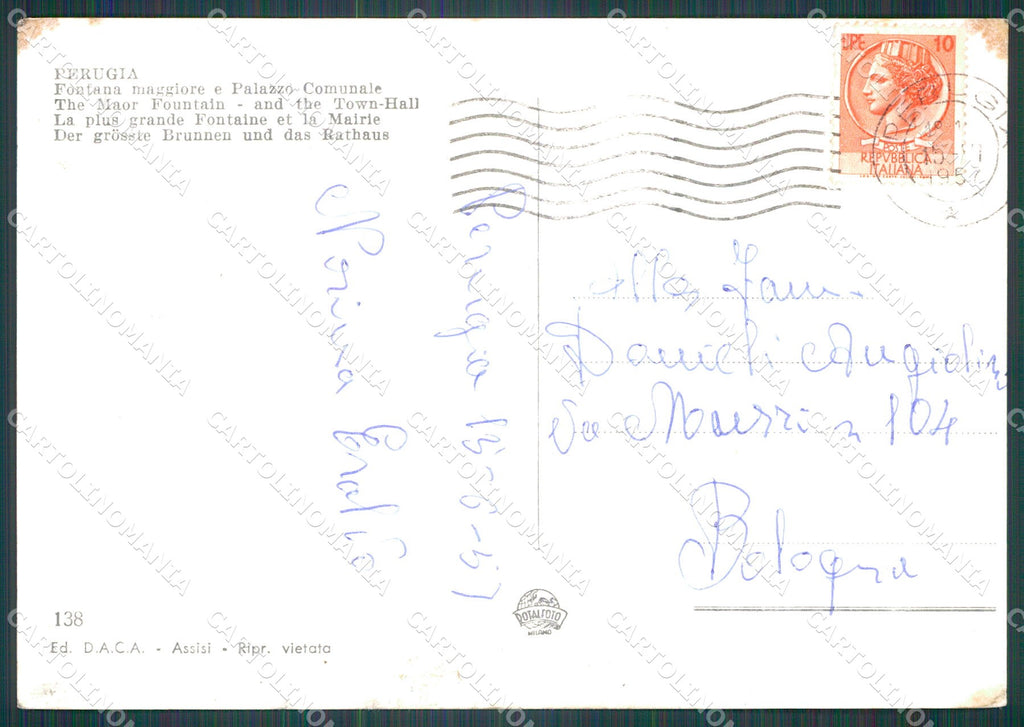 PERUGIA
Fontana maggiore e Palazzo Comunale
The Maor Fountain - and the Town-Hall
La plus grande Fontaine et la Mairie
Der grösste Brunnen und das Rathaus
LIRE 10
POSTE
REPVBBLICA
ITALIANA
Perugia 15-6-57
Alla Fam.
Danieli Angiolin
Via Mazzini 104
Bologna
138
Ed. D.A.C.A. - Assisi - Ripr. vietata
ROTALFOTO
MILANO
CARTOLINOMANIA